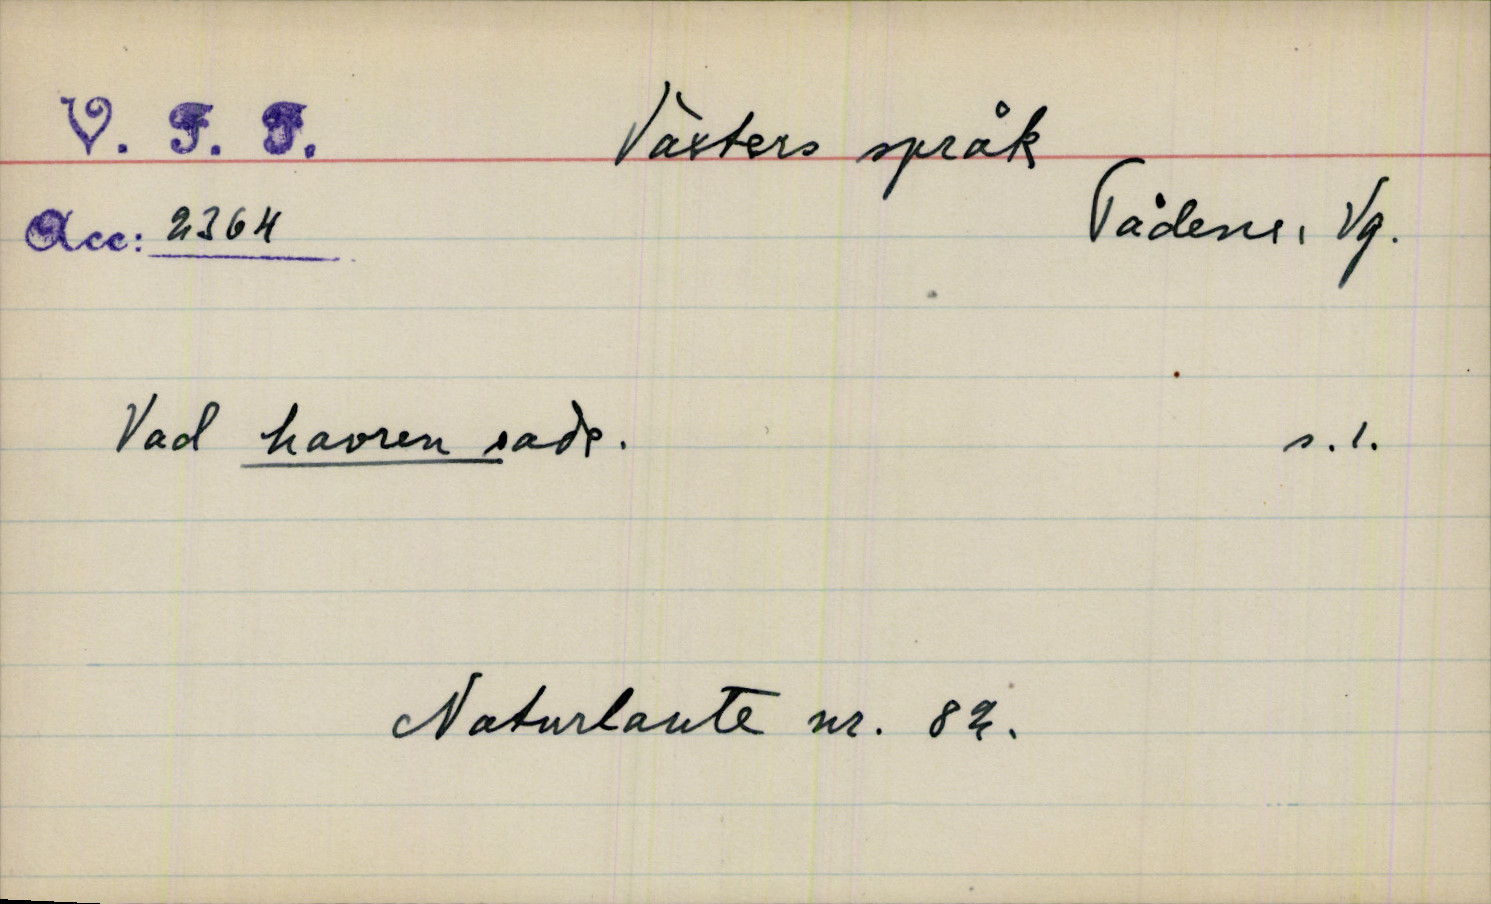 V. F. F. Växters språk
Acc: 2364 Tådene, Vg.
Vad havren sade. s. 1.
Naturlaute nr. 82.